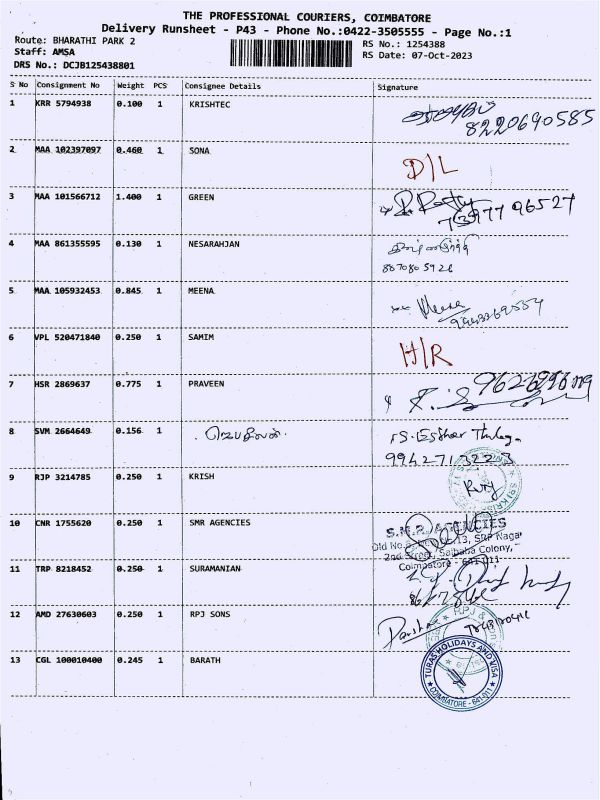 THE PROFESSIONAL COURIERS, COIMBATORE
Delivery Runsheet - P43 - Phone No.:0422-3505555 - Page No.:1
Route: BHARATHI PARK 2 RS No.: 1254388
Staff: AMSA RS Date: 07-Oct-2023
DRS No.: DCJB125438801
S No Consignment No Weight PCS Consignee Details Signature
1 KRR 5794938 0.100 1 KRISHTEC
8220690585
2 MAA 102397097 0.460 1 SONA
D/L
3 MAA 101566712 1.400 1 GREEN
73977 96527
4 MAA 861355595 0.130 1 NESARAHJAN
807080 5928
5 MAA 105932453 0.845 1 MEENA
Meena
6 VPL 520471840 0.250 1 SAMIM
H/R
7 HSR 2869637 0.775 1 PRAVEEN
8 SVM 2664649 0.156 1 ஜெபசீலன். S. Esther
9942713223
9 RJP 3214785 0.250 1 KRISH
10 CNR 1755620 0.250 1 SMR AGENCIES
S.M.R. AGENCIES
Old No. 13, SRP Nagar
2nd Street, Saibaba Colony,
Coimbatore - 641 011
11 TRP 8218452 0.250 1 SURAMANIAN
12 AMD 27630603 0.250 1 RPJ SONS
RPJ &
13 CGL 100010400 0.245 1 BARATH
TURAS HOLIDAYS AND VISA
COIMBATORE - 641 011